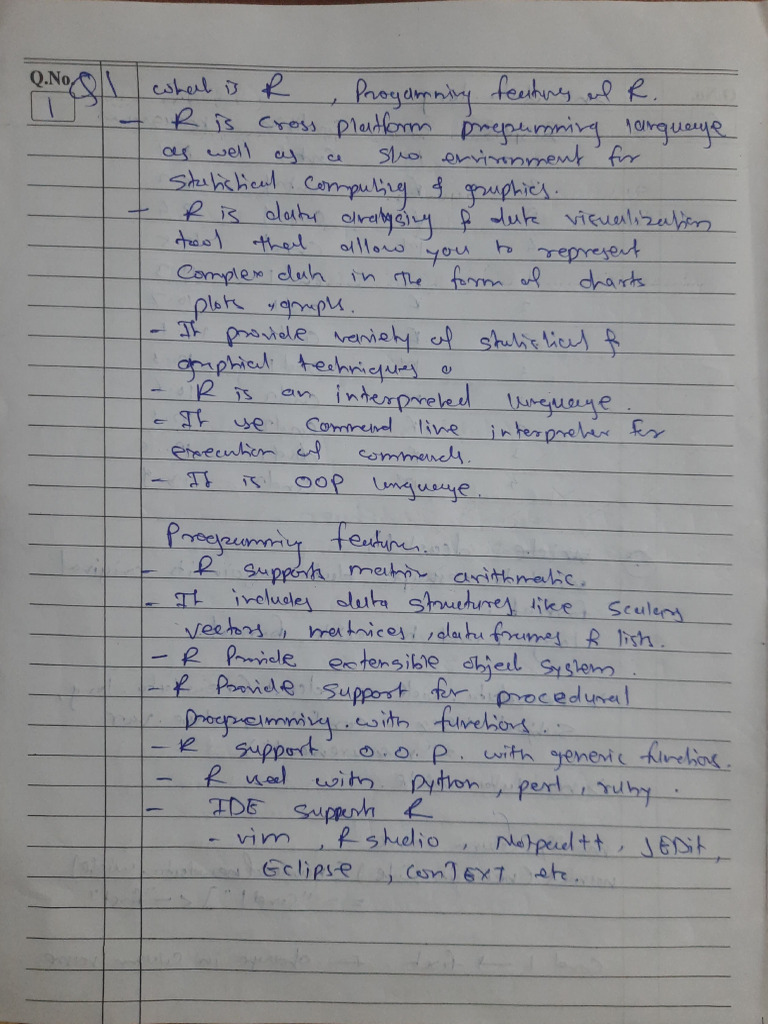 Q.No. Q1 what is R , Progamming features of R.
1
- R is cross platform programming language
as well as a environment for
statistical computing & graphics.
- R is data analysing & data visualization
tool that allow you to represent
complex data in the form of charts
plots & graphs.
- It provide variety of statistical &
graphical techniques
- R is an interpreted language.
- It use command line interpreter for
execution of commands.
- It is OOP language.
Programming features.
- R supports matrix arithmatic.
- It includes data structures like scalars
vectors, matrices, data frames & lists.
- R Provide extensible object system.
- R Provide support for procedural
programming with functions.
- R support O.O.P. with generic functions.
- R used with python, perl, ruby.
- IDE supports R
- vim, R studio, Notpad++, JEDit,
Eclipse, ConTEXT etc.